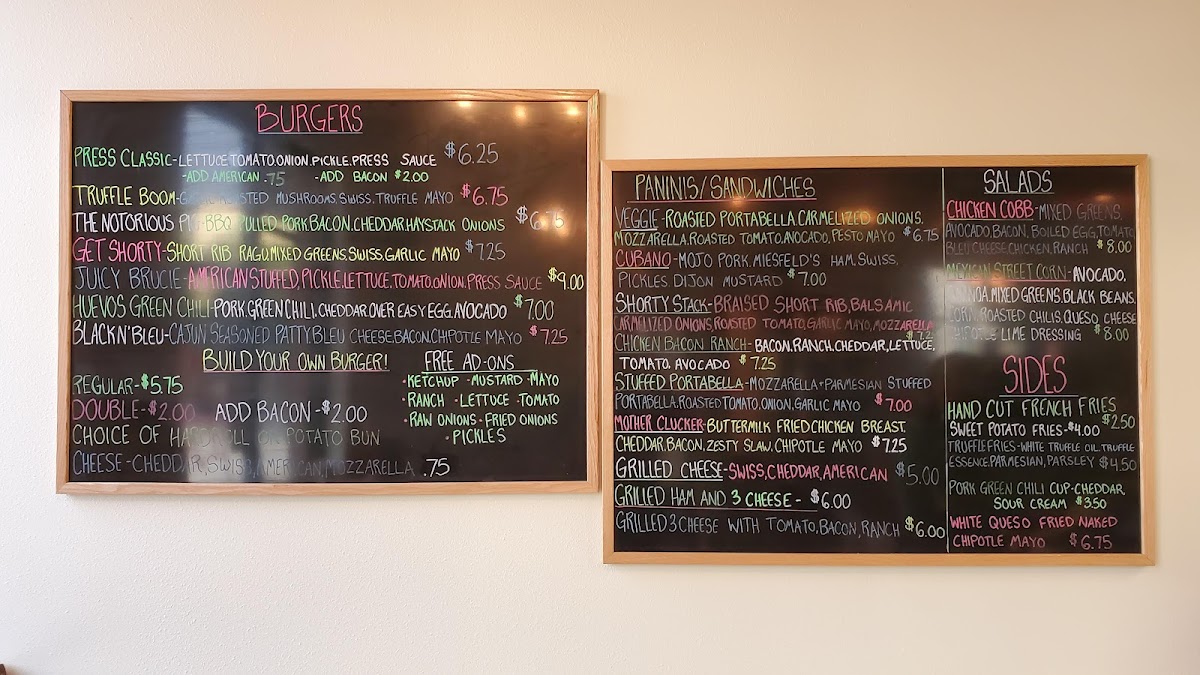 BURGERS
PRESS CLASSIC-LETTUCE.TOMATO.ONION.PICKLE.PRESS SAUCE $6.25
-ADD AMERICAN .75 -ADD BACON $2.00
TRUFFLE BOOM- ROASTED MUSHROOMS.SWISS.TRUFFLE MAYO $6.75
THE NOTORIOUS PIG-BBQ PULLED PORK.BACON.CHEDDAR.HAYSTACK ONIONS
GET SHORTY-SHORT RIB RAGU.MIXED GREENS.SWISS.GARLIC MAYO $7.25
JUICY BRUCIE-AMERICAN STUFFED.PICKLE.LETTUCE.TOMATO.ONION.PRESS SAUCE $9.00
HUEVOS GREEN CHILI-PORK.GREEN CHILI.CHEDDAR.OVER EASY EGG.AVOCADO $7.00
BLACK N' BLEU-CAJUN SEASONED PATTY.BLEU CHEESE.BACON.CHIPOTLE MAYO $7.25
BUILD YOUR OWN BURGER!
REGULAR-$5.75
DOUBLE-$2.00 ADD BACON-$2.00
CHOICE OF HARDROLL OR POTATO BUN
CHEESE-CHEDDAR,SWISS,AMERICAN,MOZZARELLA .75
FREE AD-ONS
·KETCHUP ·MUSTARD ·MAYO
·RANCH ·LETTUCE ·TOMATO
·RAW ONIONS ·FRIED ONIONS
·PICKLES
PANINIS/SANDWICHES
VEGGIE-ROASTED PORTABELLA.CARMELIZED ONIONS.
MOZZARELLA.ROASTED TOMATO.AVOCADO.PESTO MAYO $6.75
CUBANO-MOJO PORK.MIESFELD'S HAM.SWISS.
PICKLES.DIJON MUSTARD $7.00
SHORTY STACK-BRAISED SHORT RIB,BALSAMIC
CARMELIZED ONIONS,ROASTED TOMATO,GARLIC MAYO,MOZZARELLA
CHICKEN BACON RANCH-BACON.RANCH.CHEDDAR,LETTUCE,
TOMATO.AVOCADO $7.25
STUFFED PORTABELLA-MOZZARELLA+PARMESIAN STUFFED
PORTABELLA.ROASTED TOMATO.ONION.GARLIC MAYO $7.00
MOTHER CLUCKER-BUTTERMILK FRIED CHICKEN BREAST.
CHEDDAR,BACON,ZESTY SLAW.CHIPOTLE MAYO $7.25
GRILLED CHEESE-SWISS,CHEDDAR,AMERICAN $5.00
GRILLED HAM AND 3 CHEESE- $6.00
GRILLED 3 CHEESE WITH TOMATO,BACON,RANCH $6.00
SALADS
CHICKEN COBB-MIXED GREENS.
AVOCADO,BACON,BOILED EGG,TOMATO
BLEU CHEESE.CHICKEN.RANCH $8.00
MEXICAN STREET CORN-AVOCADO.
QUINOA.MIXED GREENS.BLACK BEANS.
CORN.ROASTED CHILIS.QUESO CHEESE
CHIPOTLE LIME DRESSING $8.00
SIDES
HAND CUT FRENCH FRIES $2.50
SWEET POTATO FRIES-$4.00
TRUFFLE FRIES-WHITE TRUFFLE OIL.TRUFFLE
ESSENCE.PARMESIAN,PARSLEY $4.50
PORK GREEN CHILI CUP-CHEDDAR,
SOUR CREAM $3.50
WHITE QUESO FRIED NAKED
CHIPOTLE MAYO $6.75